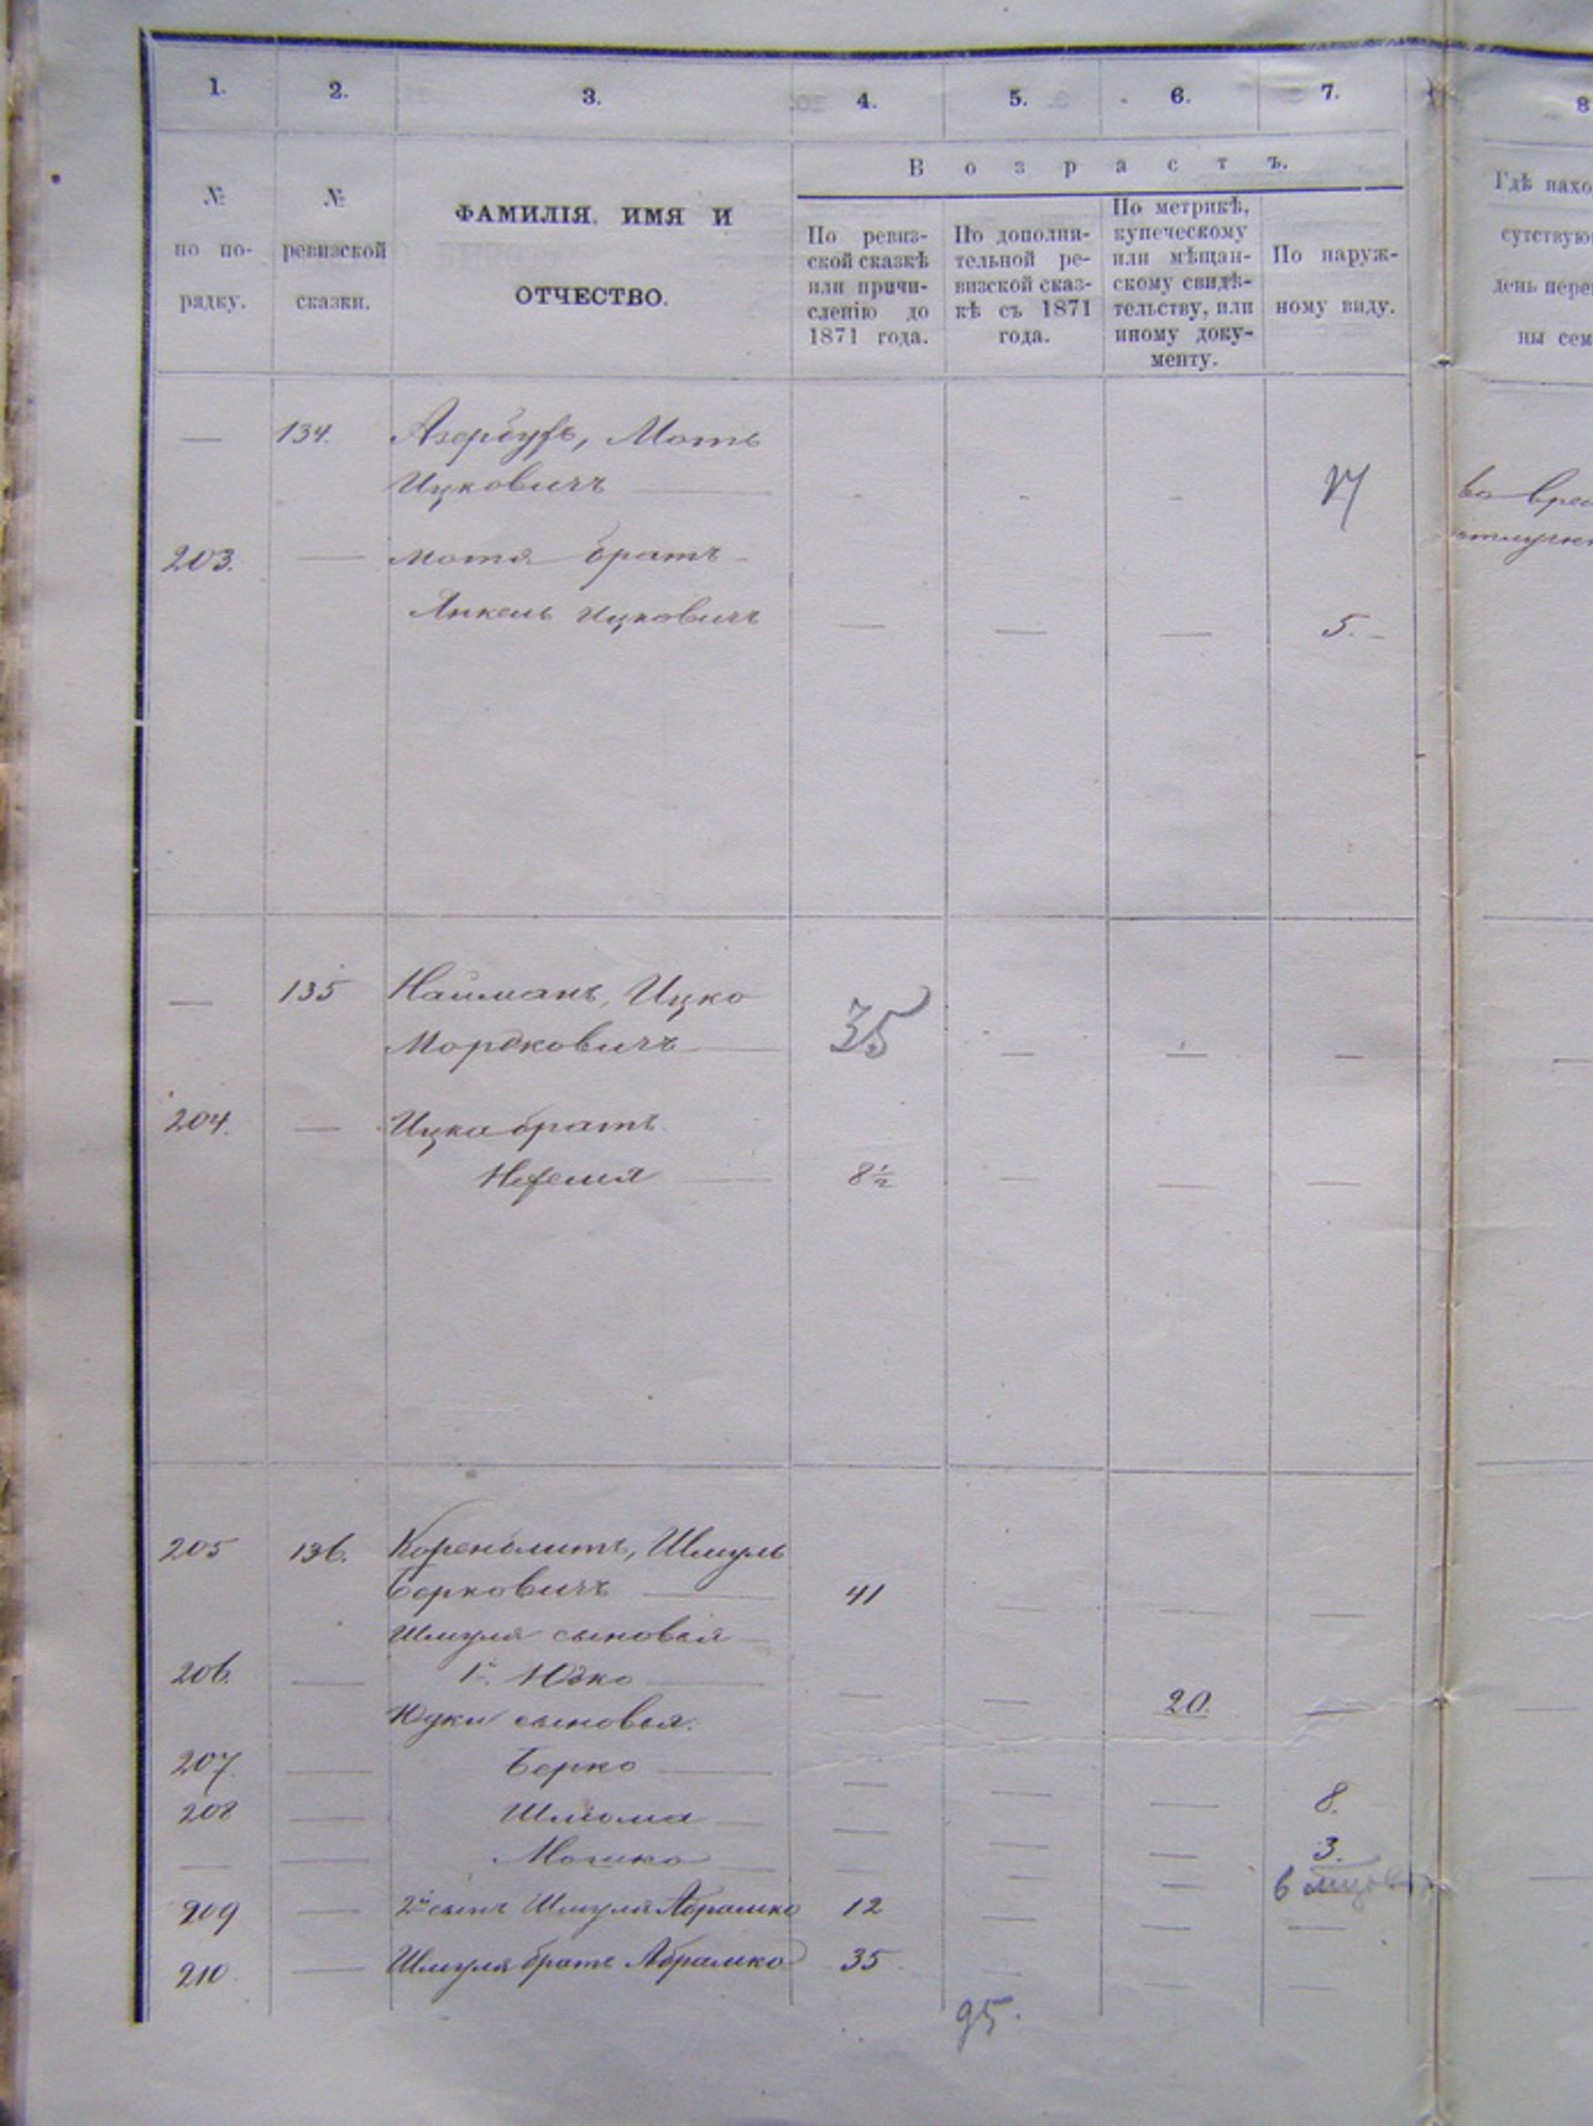 1. 2. 3. 4. 5. 6. 7. 8
Возрастъ.
№ по по-рядку.
№ ревизской сказки.
ФАМИЛІЯ, ИМЯ И
ОТЧЕСТВО.
По ревиз-
ской сказкѣ
или причи-
сленію до
1871 года.
По дополни-
тельной ре-
визской сказ-
кѣ съ 1871
года.
По метрикѣ,
купеческому
или мѣщан-
скому свидѣ-
тельству, или
иному доку-
менту.
По наруж-
ному виду.
Гдѣ нахо
сутствую
день пере
ны сем
— 134. Азербухъ, Моть
Ицковичъ — 17
во вре
отлучк
203. — Мотя братъ
Янкель Ицковичъ — — — 5. —
— 135 Найманъ, Ицко
Мордковичъ — 35 — — —
204. — Ицка братъ
— 8½ — — —
205 136. Шмуль
Берковичъ — 41 — — —
Шмуля сыновья
206. — 1й. Юдко — — — 20. —
Юдки сыновья.
207. — Берко — — — — 8.
208 — Шлiома — — — — 3.
— — Мошко — — — — 6
209 — 2й сынъ Шмуля Абрамко 12 — — —
210. — Шмуля братъ Абрамко 35 — — —
95.